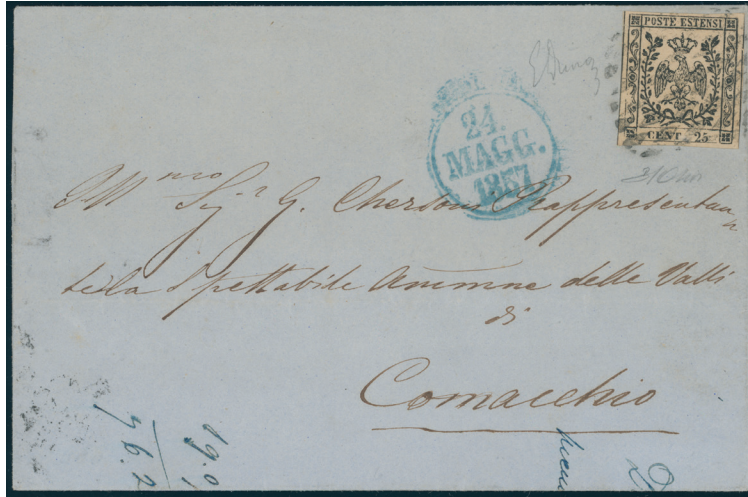 POSTE ESTENSI
CENT 25
24.
MAGG.
1857
Ill.mo Sig.r G. Rappresentan
te la Spettabile delle Valli
di
Comacchio
19.0
76.2